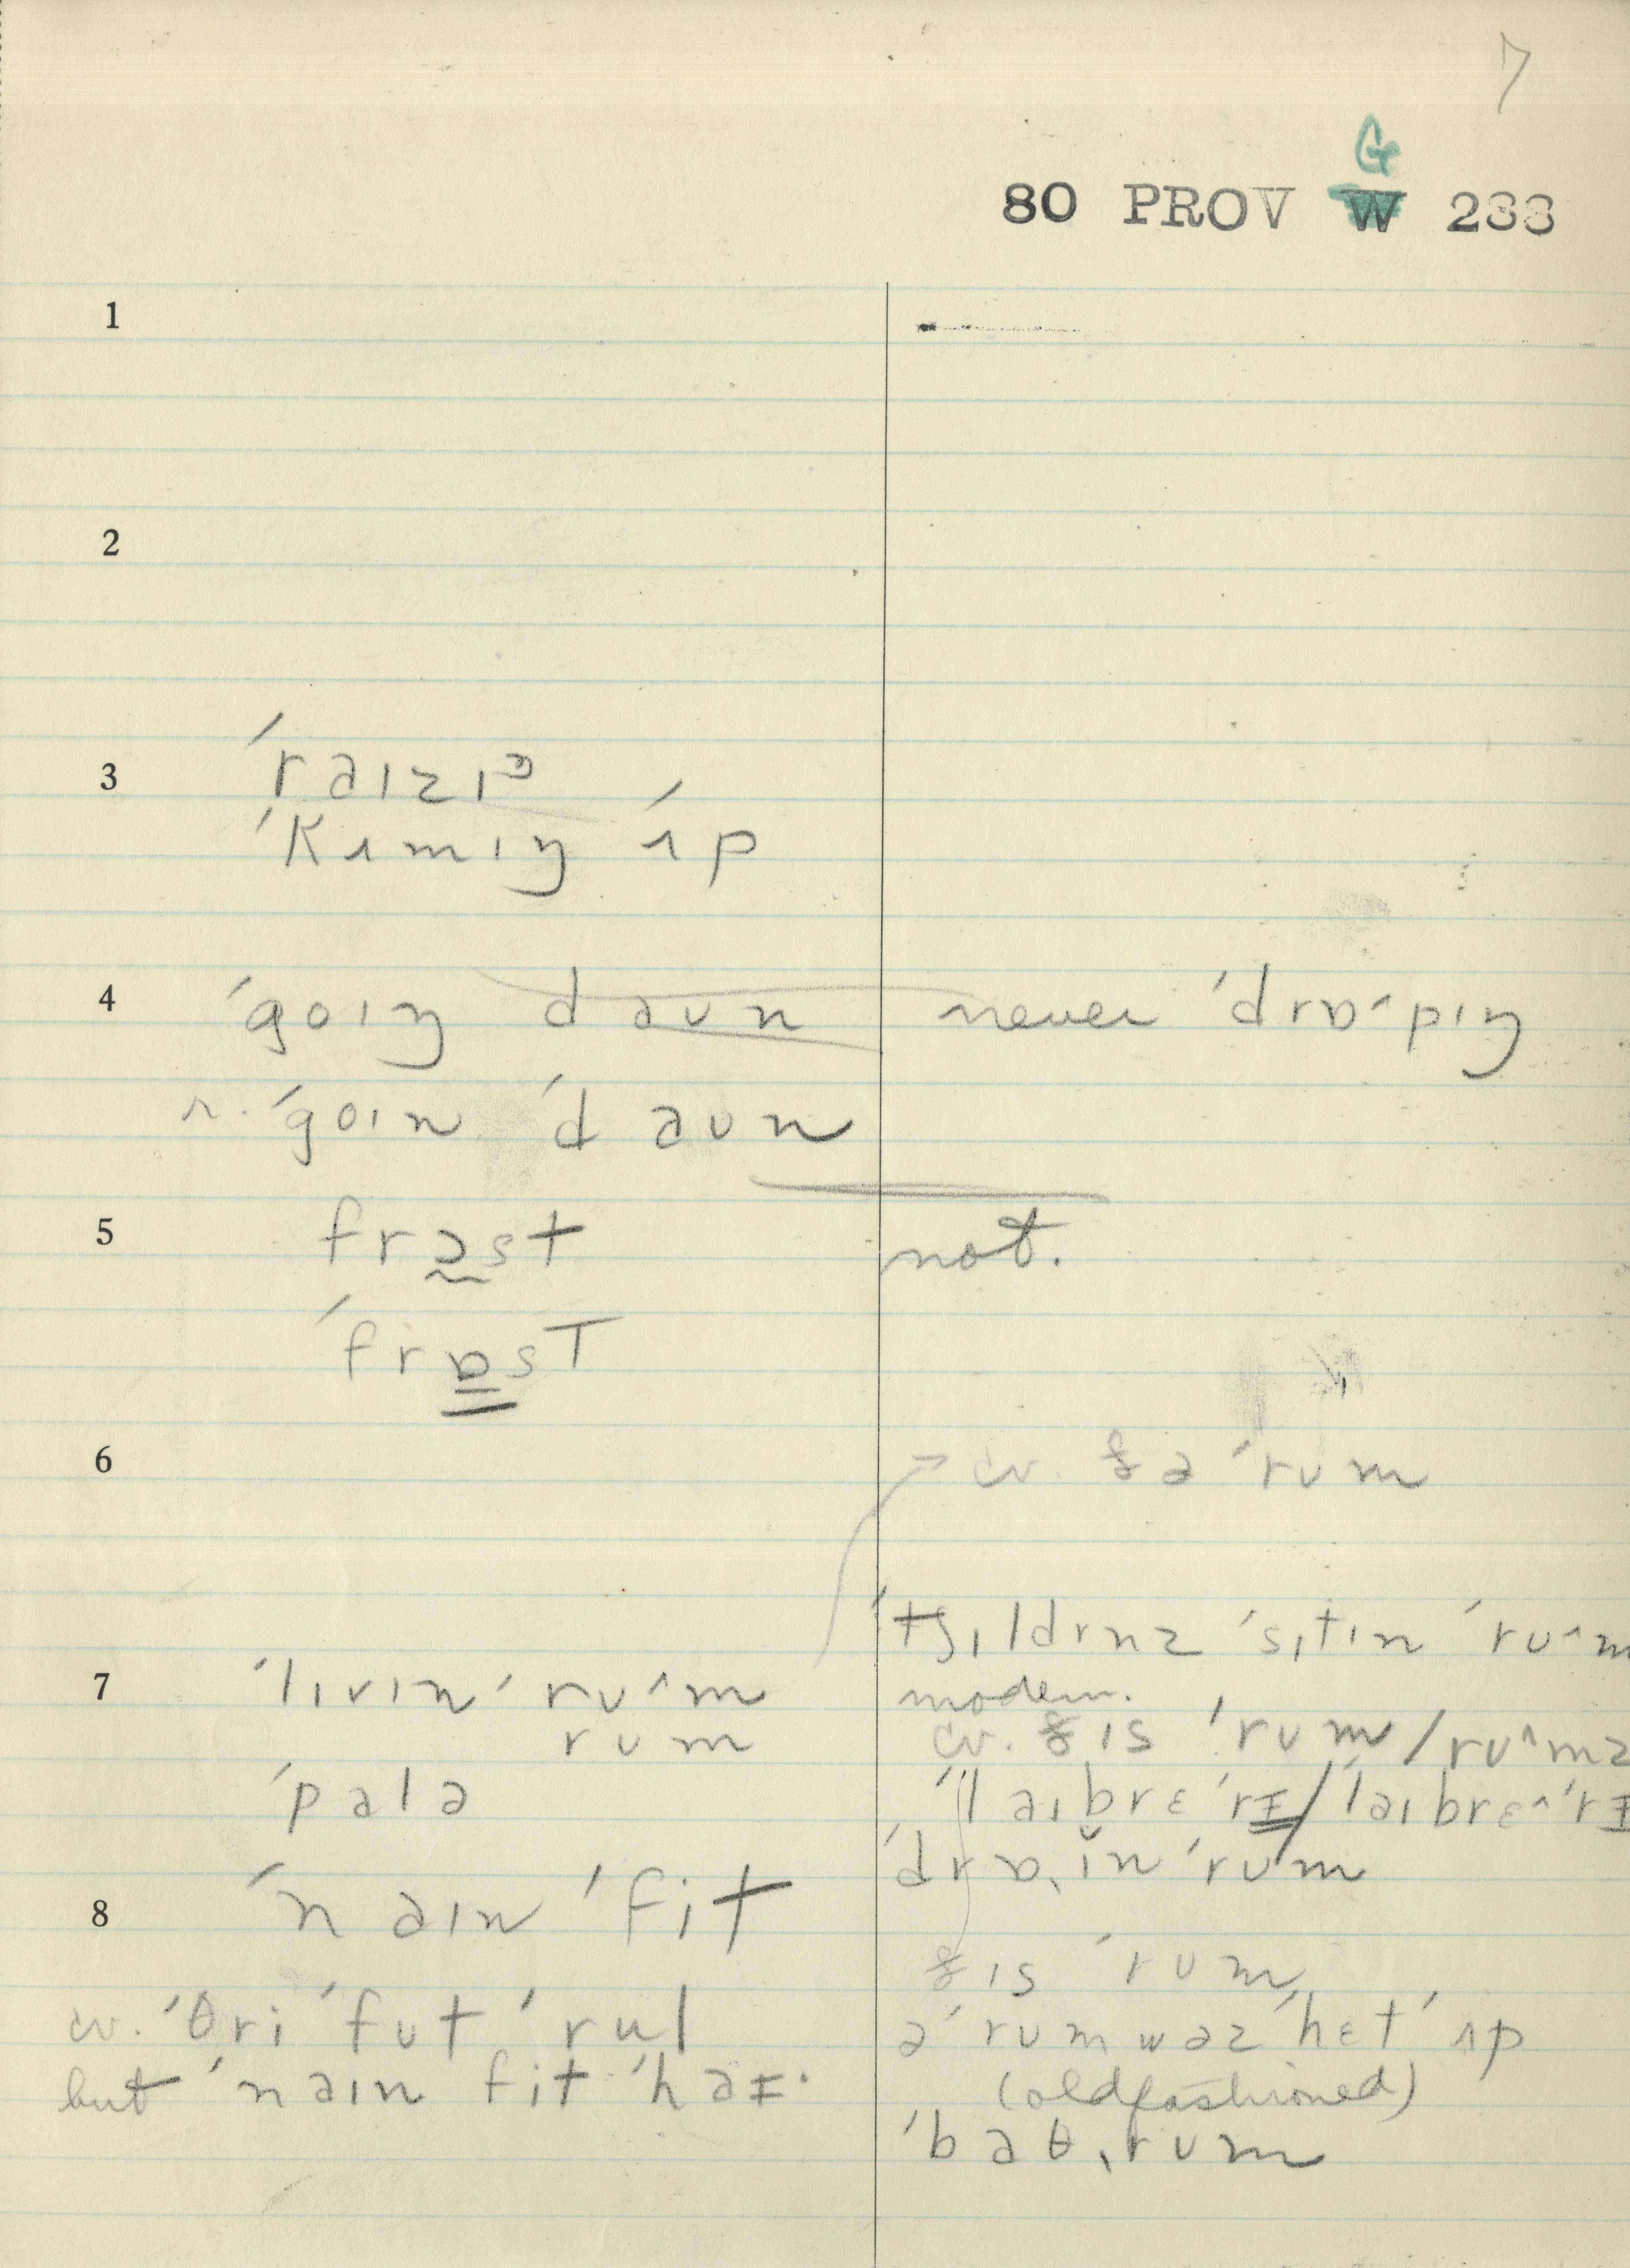 7
G
80 PROV W 233
1
2
3 ˈraɪzɪᵊ
ˈkʌmɪŋ ˈʌp
4 ˈgoɪŋ daʊn never ˈdrɒˑpɪŋ
r. ˈgoɪn ˈdaʊn
5 frɔst not.
ˈfrɒsT
6 → cv. ðə ˈrʊm
ˈtʃɪldrnz ˈsɪtɪn ˈrʊ^m
modern.
7 ˈlɪvɪn ˈrʊ^m cv. ðɪs ˈrʊm / rʊ^mz
rʊm
ˈpalə ˈlaɪbrɛˈrɪ / ˈlaɪbrɛ^ˈrɪ
ˈdrɒˌɪn ˈrʊm
8 ˈnaɪn ˈfit
ðɪs ˈrʊm
cv. ˈθri ˈfʊt ˈrul
ə ˈrʊm wəz ˈhɛt ˈʌp
but ˈnaɪn fit ˈhaɪ·
(oldfashioned)
ˈbaθˌrʊm